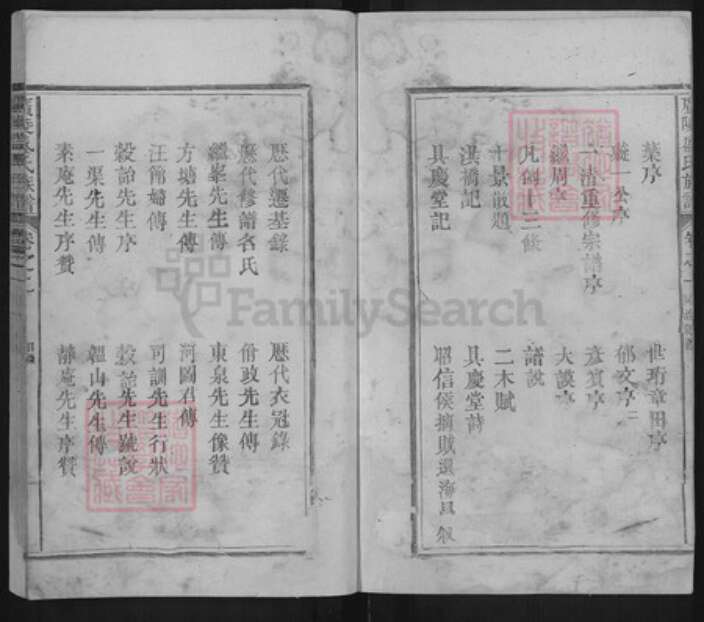 葉序
世珩章田序
郁文序二
一清重修宗譜序
彥賓序
繼周序
大謨序
凡例十三條
譜說
十景散題
二木賦
洪橋記
具慶堂詩
具慶堂記
昭信侯擒賊還海昌敘
歷代遷基錄
歷代衣冠錄
歷代修譜名氏
脩政先生傳
繼峯先生傳
東泉先生像贊
方塘先生傳
河圖君傳
汪節婦傳
可訓先生行狀
穀詒先生序
穀詒先生號說
一渠先生傳
龍山先生傳
素庵先生序贊
靜庵先生序贊
FamilySearch